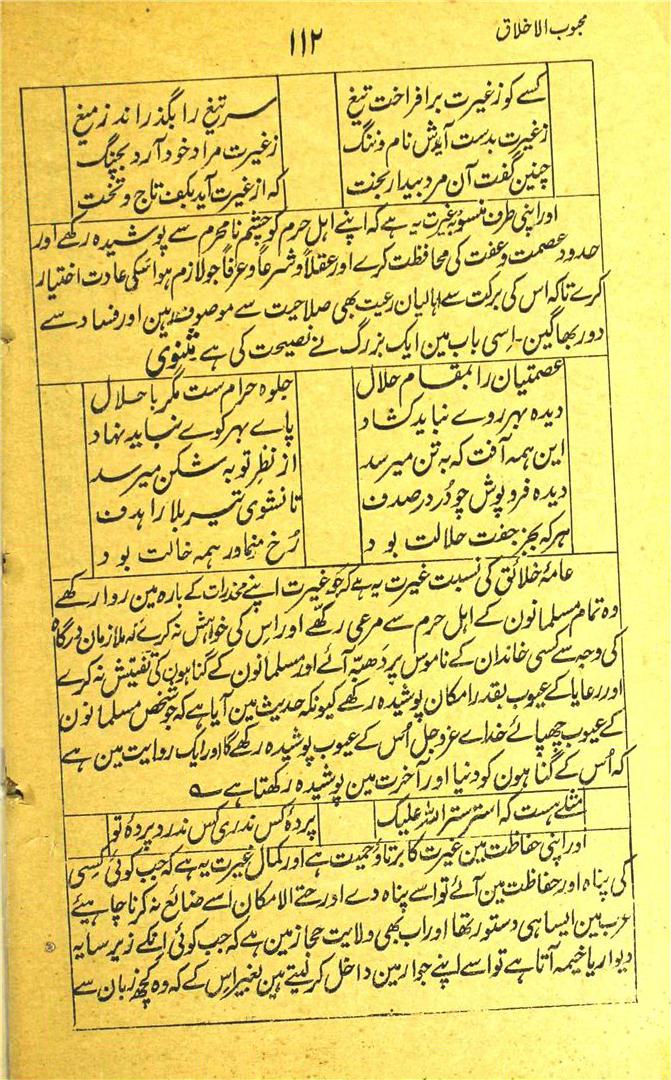 محبوب الاخلاق
۱۱۲
کسے کو زغیرت برافراخت تیغ سر تیغ را بگذراند زمیغ
زغیرت بدست آیدش نام و ننگ زغیرت مراد خود آرد بچنگ
چنین گفت آن مرد بیدار بخت که از غیرت آید بکف تاج و تخت
اور اپنی طرف منسوبہ غیرت یہ ہے کہ اپنے اہل حرم کو چشم نامحرم سے پوشیدہ رکھے اور
حدود عصمت و عفت کی محافظت کرے اور عقلاً و شرعاً و عرفاً جو لازم ہو اسکی عادت اختیار
کرے تاکہ اس کی برکت سے اہالیان رعیت بھی صلاحیت سے موصوف رہین اور فساد سے
دور بھاگین۔ اِسی باب مین ایک بزرگ نے نصیحت کی ہے۔ مثنوی
عصمتیان را بمقام حلال جلوہ حرام ست مگر با حلال
دیدہ بہر روے نباید کشاد پاے بہر کوے نباید نہاد
این ہمہ آفت کہ بہ تن میرسد از نظر توبہ شکن میرسد
دیدہ فرو پوش چو دُر در صدف تا نشوی تیر بلا را ہدف
ہر کہ بجز جفت حلالت بود رُخ منما ور ہمہ خالت بود
عامۂ خلائق کی نسبت غیرت یہ ہے کہ جو غیرت اپنے مخدرات کے بارہ مین روا رکھے
وہ تمام مسلمانون کے اہل حرم سے مرعی رکھے اور اِس کی خواہش نہ کرے کہ ملازمان درگاہ
کی وجہ سے کسی خاندان کے ناموس پر دھبہ آئے اور مسلمانون کے گناہون کی تفتیش نہ کرے
اور رعایا کے عیوب بقدر امکان پوشیدہ رکھے کیونکہ حدیث مین آیا ہے کہ جو شخص مسلمانون
کے عیوب چھپائے خداے عزوجل اُس کے عیوب پوشیدہ رکھے گا اور ایک روایت مین ہے
کہ اُس کے گناہون کو دنیا اور آخرت مین پوشیدہ رکھتا ہے ؎
مثلے ہست کہ استر ستر اللہ علیک پردۂ کس ندری کس ندرد پردۂ تو
اور اپنی حفاظت مین غیرت کا برتاؤ حمیت ہے اور کمال غیرت یہ ہے کہ جب کوئی کسی
کی پناہ اور حفاظت مین آئے تو اسے پناہ دے اور حتے الامکان اُسے ضائع نہ کرنا چاہیئے
عرب مین ایسا ہی دستور تھا اور اب بھی ولایت حجاز مین ہے کہ جب کوئی اُنکے زیر سایہ
دیوار یا خیمہ آتا ہے تو اسے اپنے جوار مین داخل کر لیتے ہین بغیر اِس کے کہ وہ کچھ زبان سے